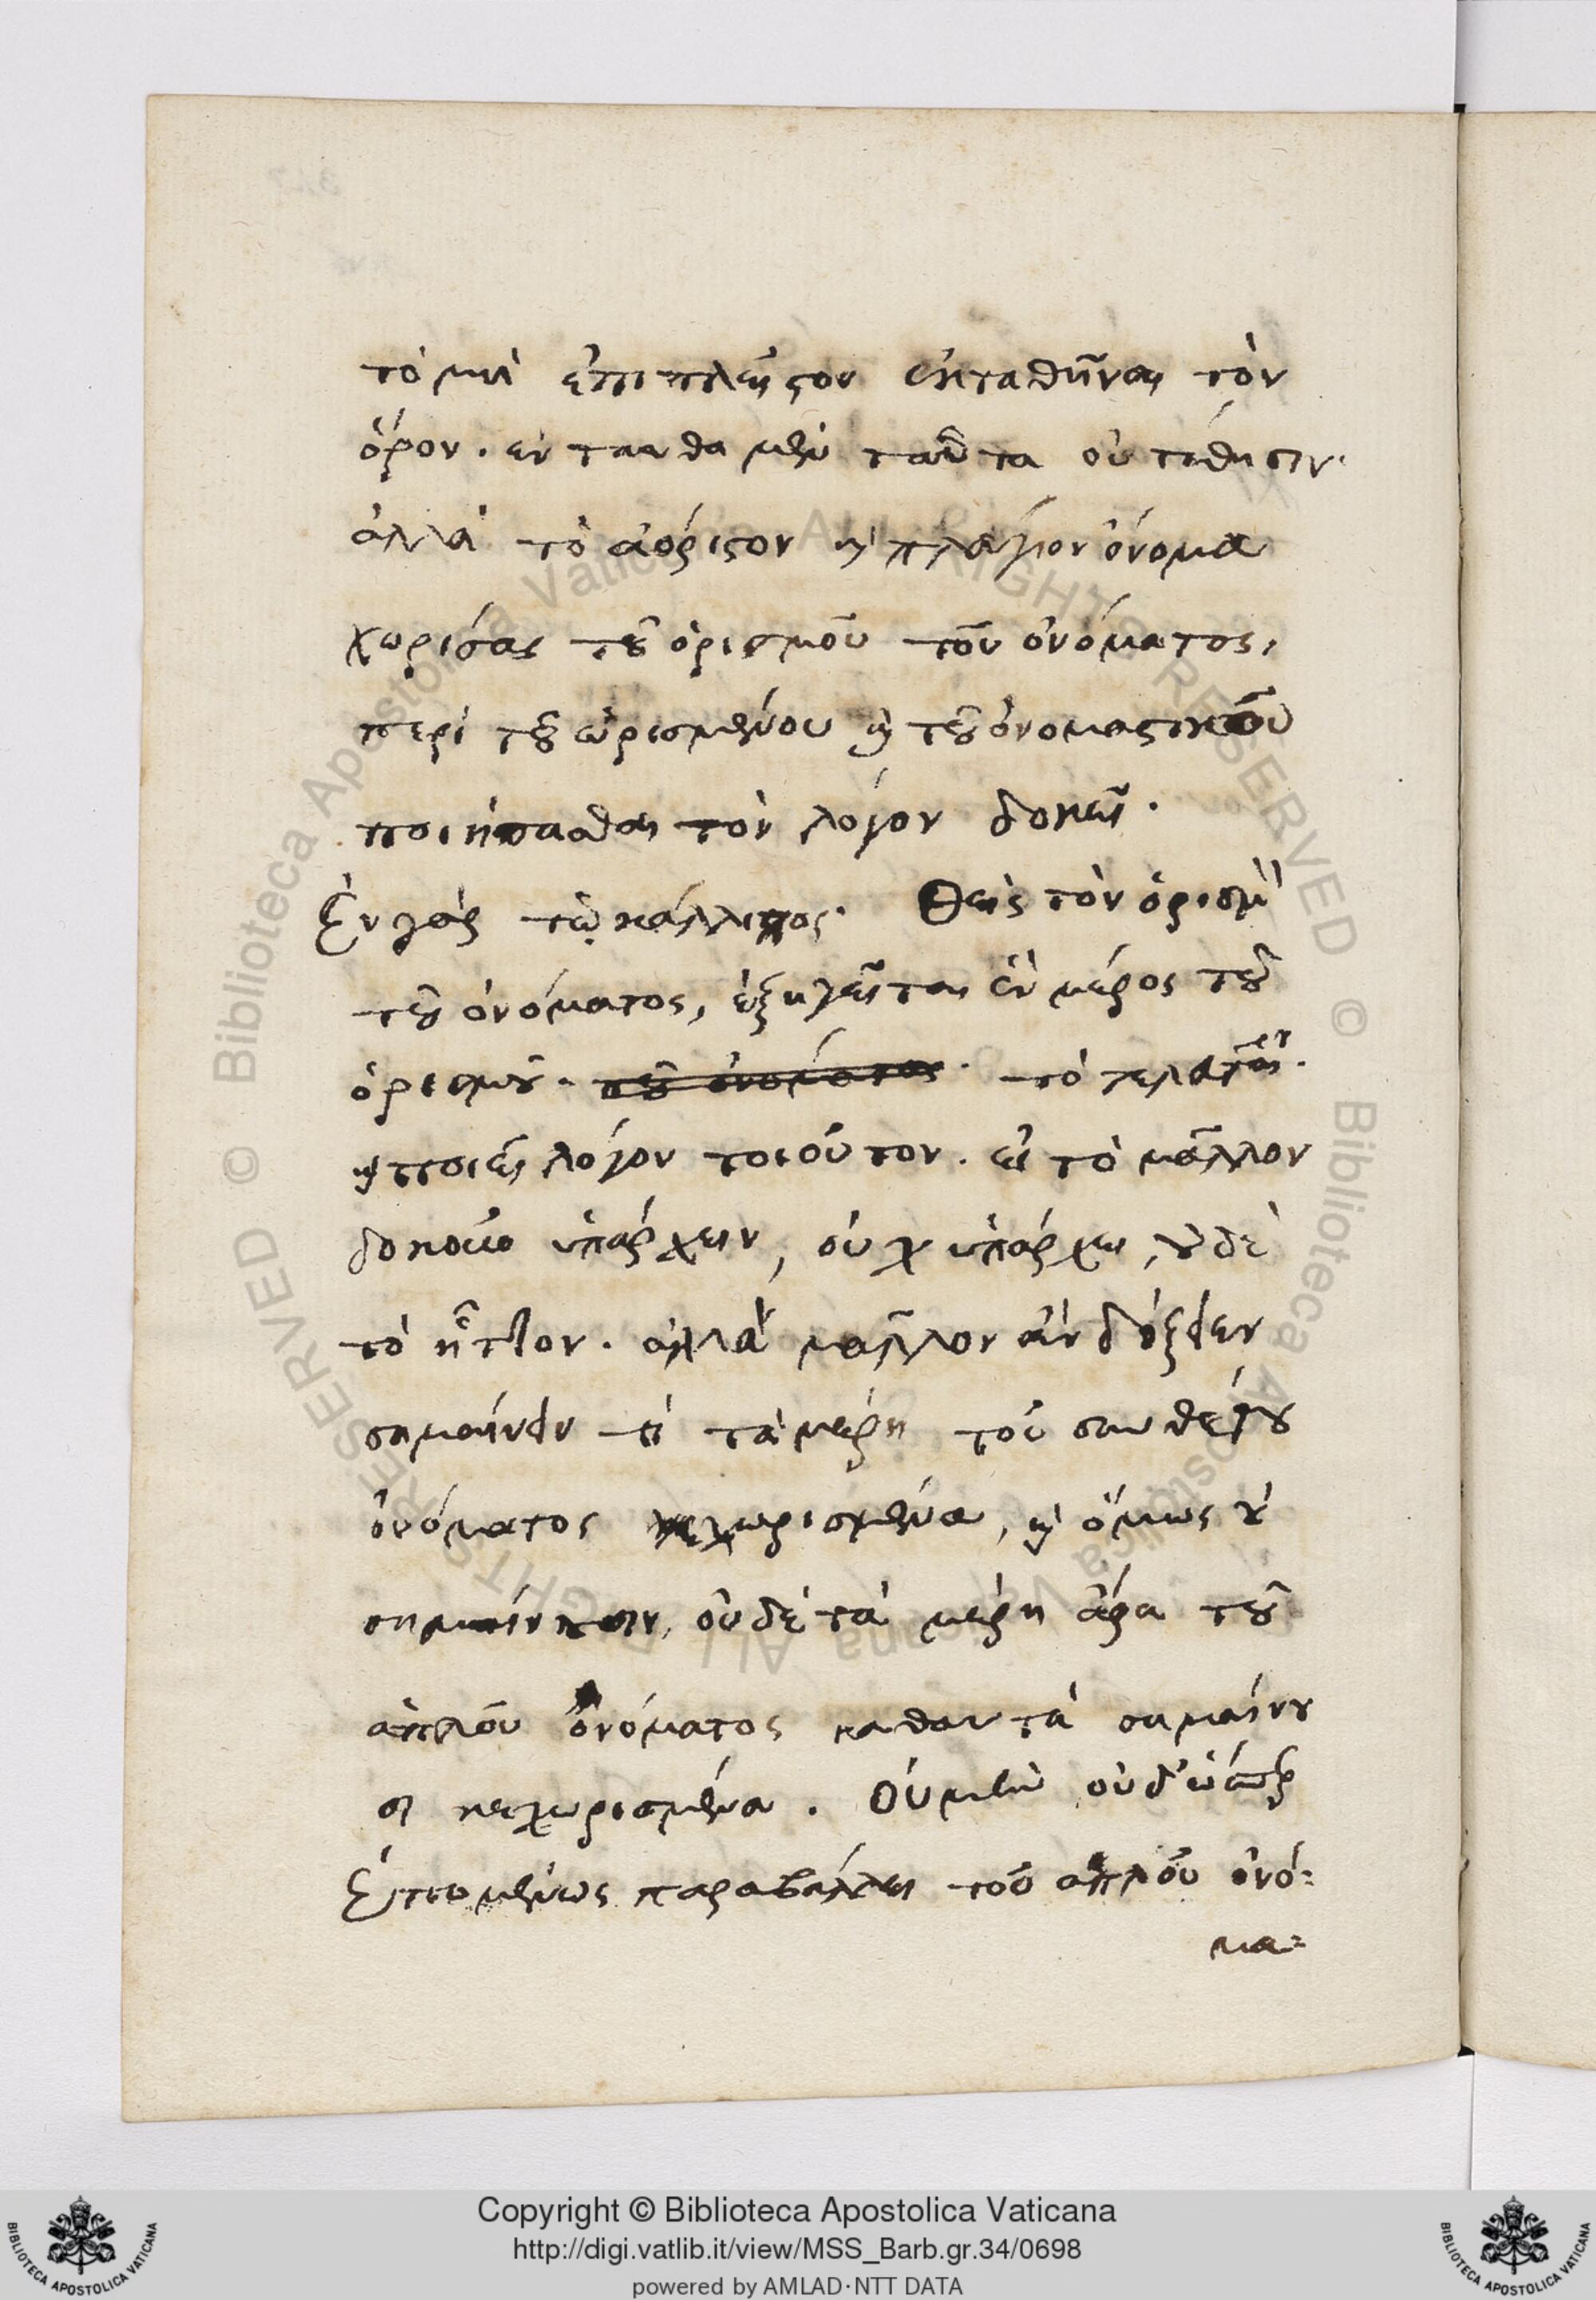 τὸ μὴ ἐπιπλεῖστον ἐκταθῆναι τὸν
ὅρον. ἐνταυθα μὲν ταῦτα οὐ τίθησιν.
ἀλλὰ τὸ ἀόριστον καὶ πλάγιον ὄνομα
χωρίσας τοῦ ὁρισμοῦ τοῦ ὀνόματος,
περὶ τοῦ ὡρισμένου καὶ τοῦ ὀνομαστικοῦ
ποιήσασθαι τὸν λόγον δοκεῖ.
Ἐν γὰρ τῷ κάλλιππος. Θεὶς τὸν ὁρισμὸν
τοῦ ὀνόματος, ἐξηγεῖται ἓν μέρος τοῦ
ὁρισμοῦ. τοῦ ὀνόματος. τὸ τελευταῖον.
καὶ ποιεῖ λόγον τοιοῦτον. εἰ τὸ μᾶλλον
δοκοῦν ὑπάρχειν, οὐχ ὑπάρχει, οὐδὲ
τὸ ἧττον. ἀλλὰ μᾶλλον ἂν δόξειεν
σημαίνειν τὶ τὰ μέρη τοῦ συνθέτου
ὀνόματος κεχωρισμένα, καὶ ὅμως οὐ
σημαίνουσιν, οὐδὲ τὰ μέρη ἄρα τοῦ
ἁπλοῦ ὀνόματος καθαυτὰ σημαίνου
σι κεχωρισμένα. Οὐ μὲν οὐδ' ὥσπερ
Ἑπομένως παραβάλλει τοῦ ἁπλοῦ ὀνό=
μα=
Copyright © Biblioteca Apostolica Vaticana
http://digi.vatlib.it/view/MSS_Barb.gr.34/0698
powered by AMLAD·NTT DATA